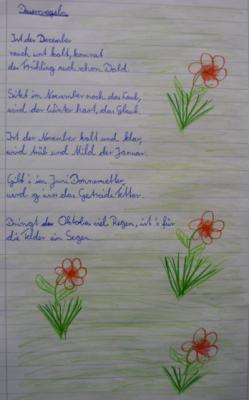 Bauernregeln
Ist der Dezember
rauh und kalt, kommt
der Frühling auch schon bald.
Sitzt im November noch das Laub,
wird der Winter hart, das glaub.
Ist der November kalt und klar,
wird trüb und mild der Januar.
Gibt's im Juni Donnerwetter,
wird g'wiss das Getreide fetter.
Bringt der Oktober viel Regen, ist's für
die Felder ein Segen